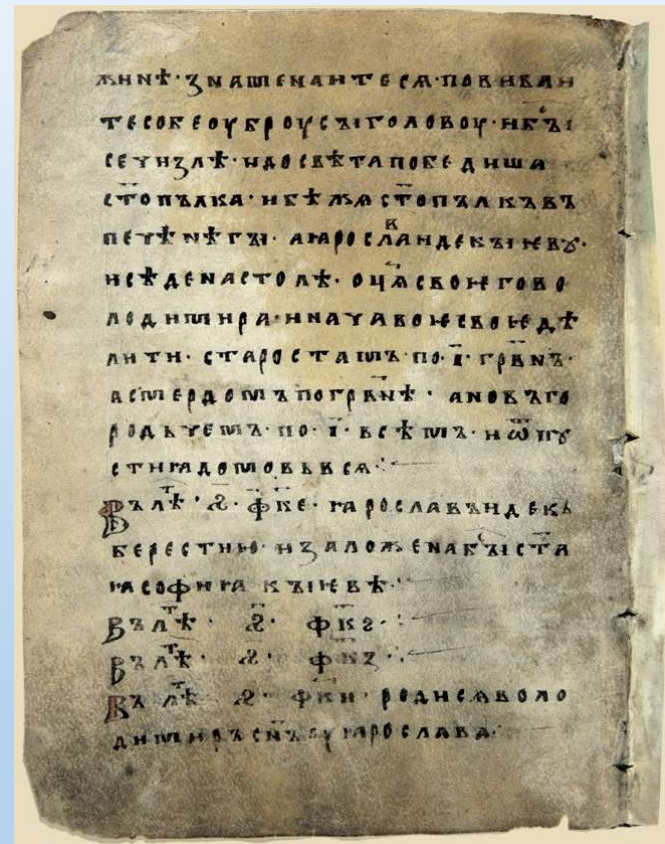 жинѣ · знаменаитесѧ · повиваи
те собе оуброусы головоу · и бы
сечизлѣ · и до свѣта победиша
ст҃опълка · и бѣжѧ ст҃опълкъ въ
печенѣгы · а ꙗрослⷡа иде кыѥву ·
и сѣде на столѣ · оц҃ѧ своѥго во
лодимира · и нача воѥ своѥ дѣ
лити · старостамъ · по · і҃ · гр҃внъ ·
а смердомъ по гр҃внѣ · а новъго
родьчемъ · по · і҃ · всѣмъ · и ѿпу
сти ꙗ домовь всѧ ⁘
Въ лѣⷮ · ѕ҃ · ф҃к҃е · ꙗрославъ иде къ
берестию · и заложена бы҃ ста
ꙗ софиꙗ кыѥвѣ ⁘
Въ лѣⷮ · ѕ҃ · ф҃к҃ѕ ⁘
Въ лѣⷮ · ѕ҃ · ф҃к҃з ⁘
Въ лѣⷮ · ѕ҃ · ф҃к҃и · родисѧ воло
димиръ сн҃ъ у ꙗрослава ·